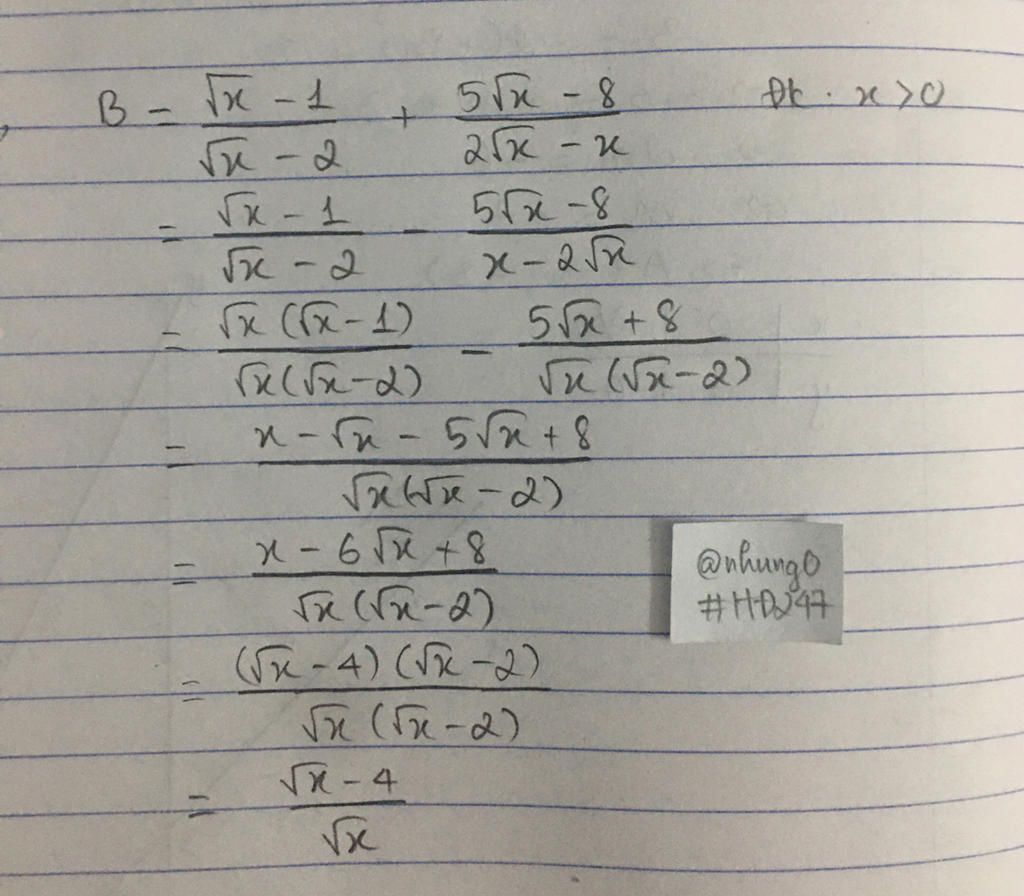 B = \frac{\sqrt{x} - 1}{\sqrt{x} - 2} + \frac{5\sqrt{x} - 8}{2\sqrt{x} - x} Đk : x > 0
= \frac{\sqrt{x} - 1}{\sqrt{x} - 2} - \frac{5\sqrt{x} - 8}{x - 2\sqrt{x}}
= \frac{\sqrt{x} (\sqrt{x} - 1)}{\sqrt{x} (\sqrt{x} - 2)} - \frac{5\sqrt{x} + 8}{\sqrt{x} (\sqrt{x} - 2)}
= \frac{x - \sqrt{x} - 5\sqrt{x} + 8}{\sqrt{x} (\sqrt{x} - 2)}
= \frac{x - 6\sqrt{x} + 8}{\sqrt{x} (\sqrt{x} - 2)}
= \frac{(\sqrt{x} - 4) (\sqrt{x} - 2)}{\sqrt{x} (\sqrt{x} - 2)}
= \frac{\sqrt{x} - 4}{\sqrt{x}}
@nhung0